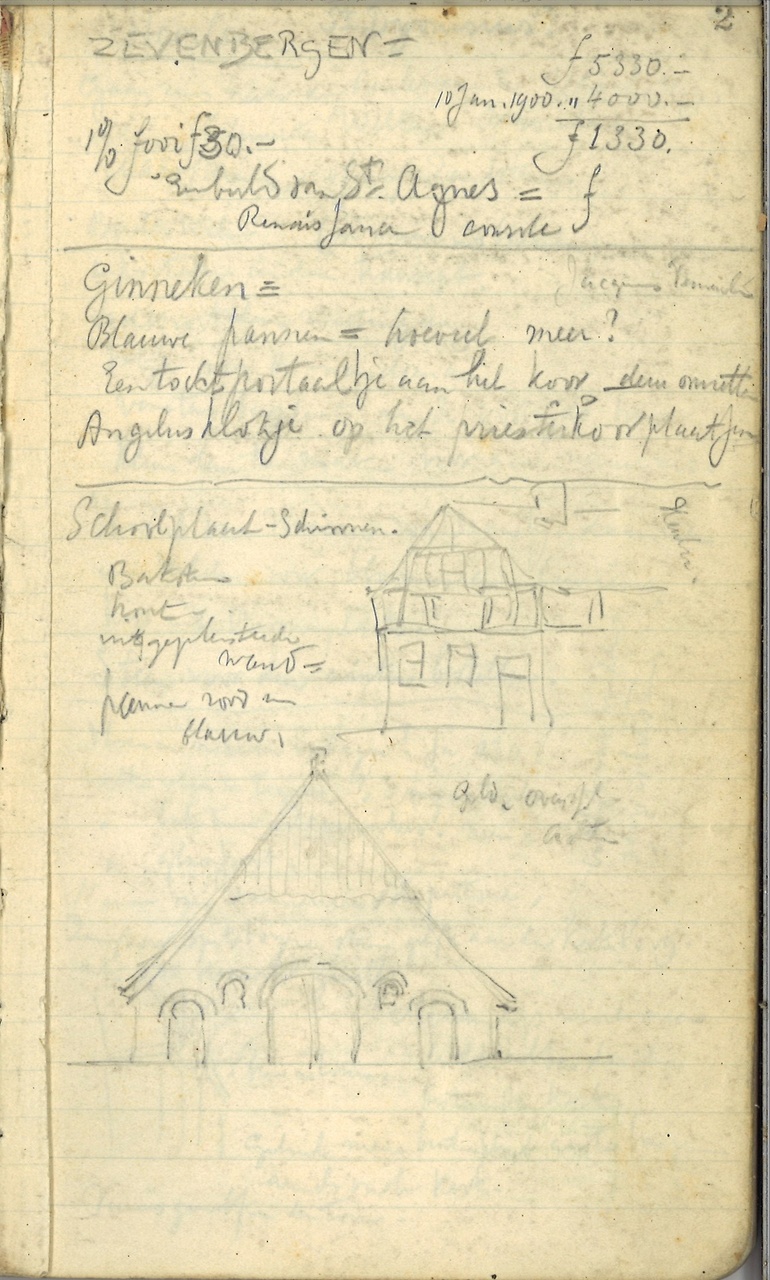 2
ZEVENBERGEN =
f 5330.-
10 Jan. 1900. " 4000.-
f 1330.
1% fooi f 30.-
Een beeld van St. Agnes = f
Renaissance console
Ginneken =
Jacques
Blauwe pannen = hoeveel meer?
Een tochtportaaltje aan het koor deur omzetten
Angelusklokje op het priesterkoor plaatsen
Schoolplaat - Schinnen.
Baksteen
hout
uitgepleisterde
wand =
pannen rood en
blauw.
Geld. overijsel